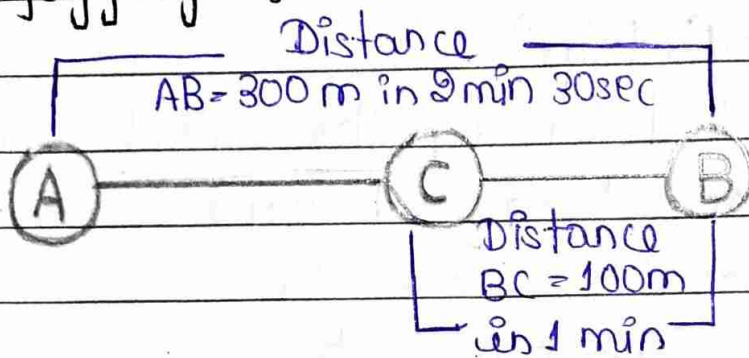 Distance
AB = 300 m in 2 min 30sec
A
C
B
Distance
BC = 100m
in 1 min